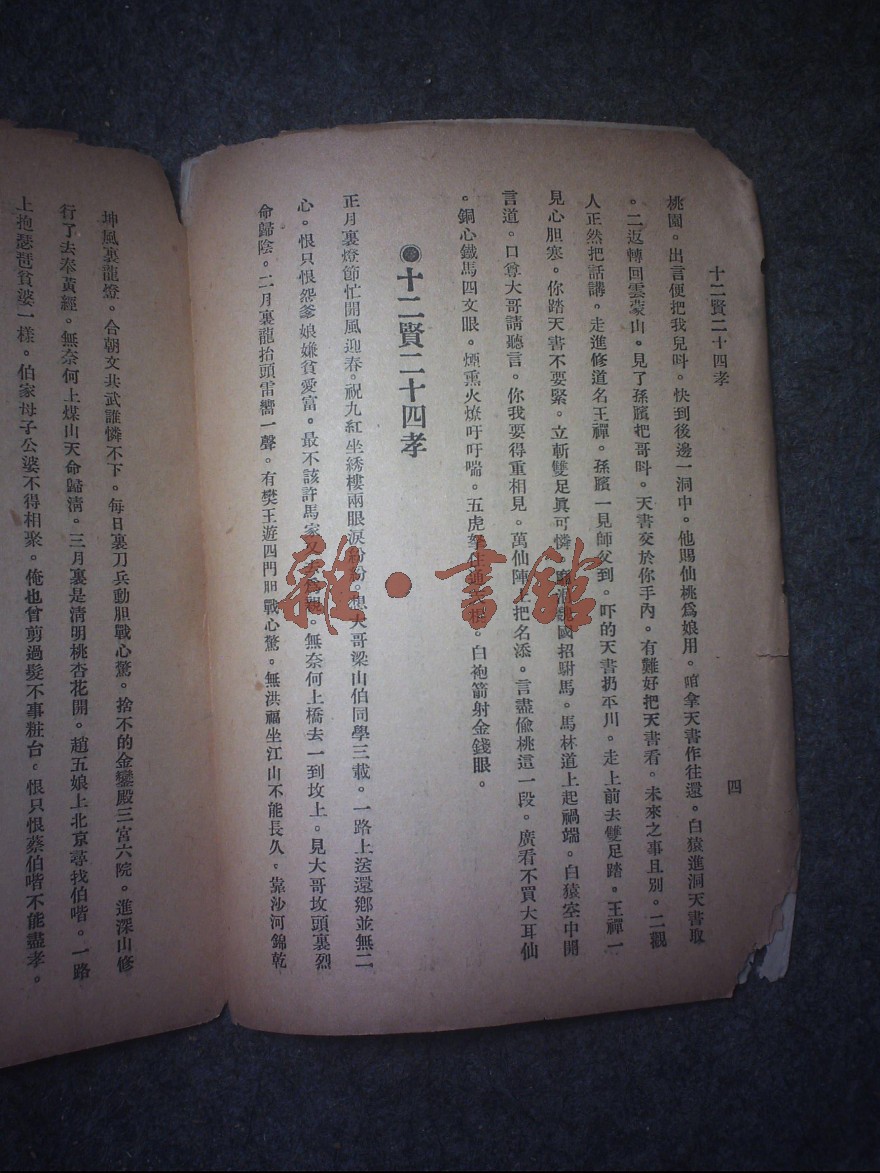 十二賢二十四孝
四
桃園。出言便把我兒呌。快到後邊一洞中。他賜仙桃爲娘用。喒拿天書作往還。白猿進洞天書取
。二返轉回雲蒙山。見了孫臏把哥呌。天書交於你手內。有難好把天書看。未來之事且別。二觀
人正然把話講。走進修道名王禪。孫臏一見師父到。吓的天書扔平川。走上前去雙足踏。王禪一
見心胆寒。你踏天書不要緊。立斬雙足眞可憐。龐涓魏國招駙馬。馬林道上起禍端。白猿空中開
言道。口尊大哥請聽言。你我要得重相見。萬仙陣上把名添。言盡偷桃這一段。廣看不買大耳仙
。銅心鐵馬四文眼。煙熏火燎吁吁喘。五虎拿住通天棍。白袍箭射金錢眼。
●十二賢二十四孝
正月裏燈節忙開風迎春。祝九紅坐綉樓兩眼淚紛紛。想大哥梁山伯同學三載。一路上送還鄉並無二
心。恨只恨怨爹娘嫌貧愛富。最不該許馬家又去爲親。無奈何上橋去一到坟上。見大哥坟頭裏烈
命歸陰。二月裏龍抬頭雷嚮一聲。有樊王遊四門胆戰心驚。無洪福坐江山不能長久。靠沙河錦乾
坤風裏龍燈。合朝文共武誰憐不下。每日裏刀兵動胆戰心驚。捨不的金鑾殿三宮六院。進深山修
行了去奉黃經。無奈何上煤山天命歸淸。三月裏是淸明桃杏花開。趙五娘上北京尋找伯喈。一路
上抱琵琶貧婆一樣。伯家母子公婆不得相聚。俺也曾剪過髮不事粧台。恨只恨蔡伯喈不能盡孝。
雜·書館